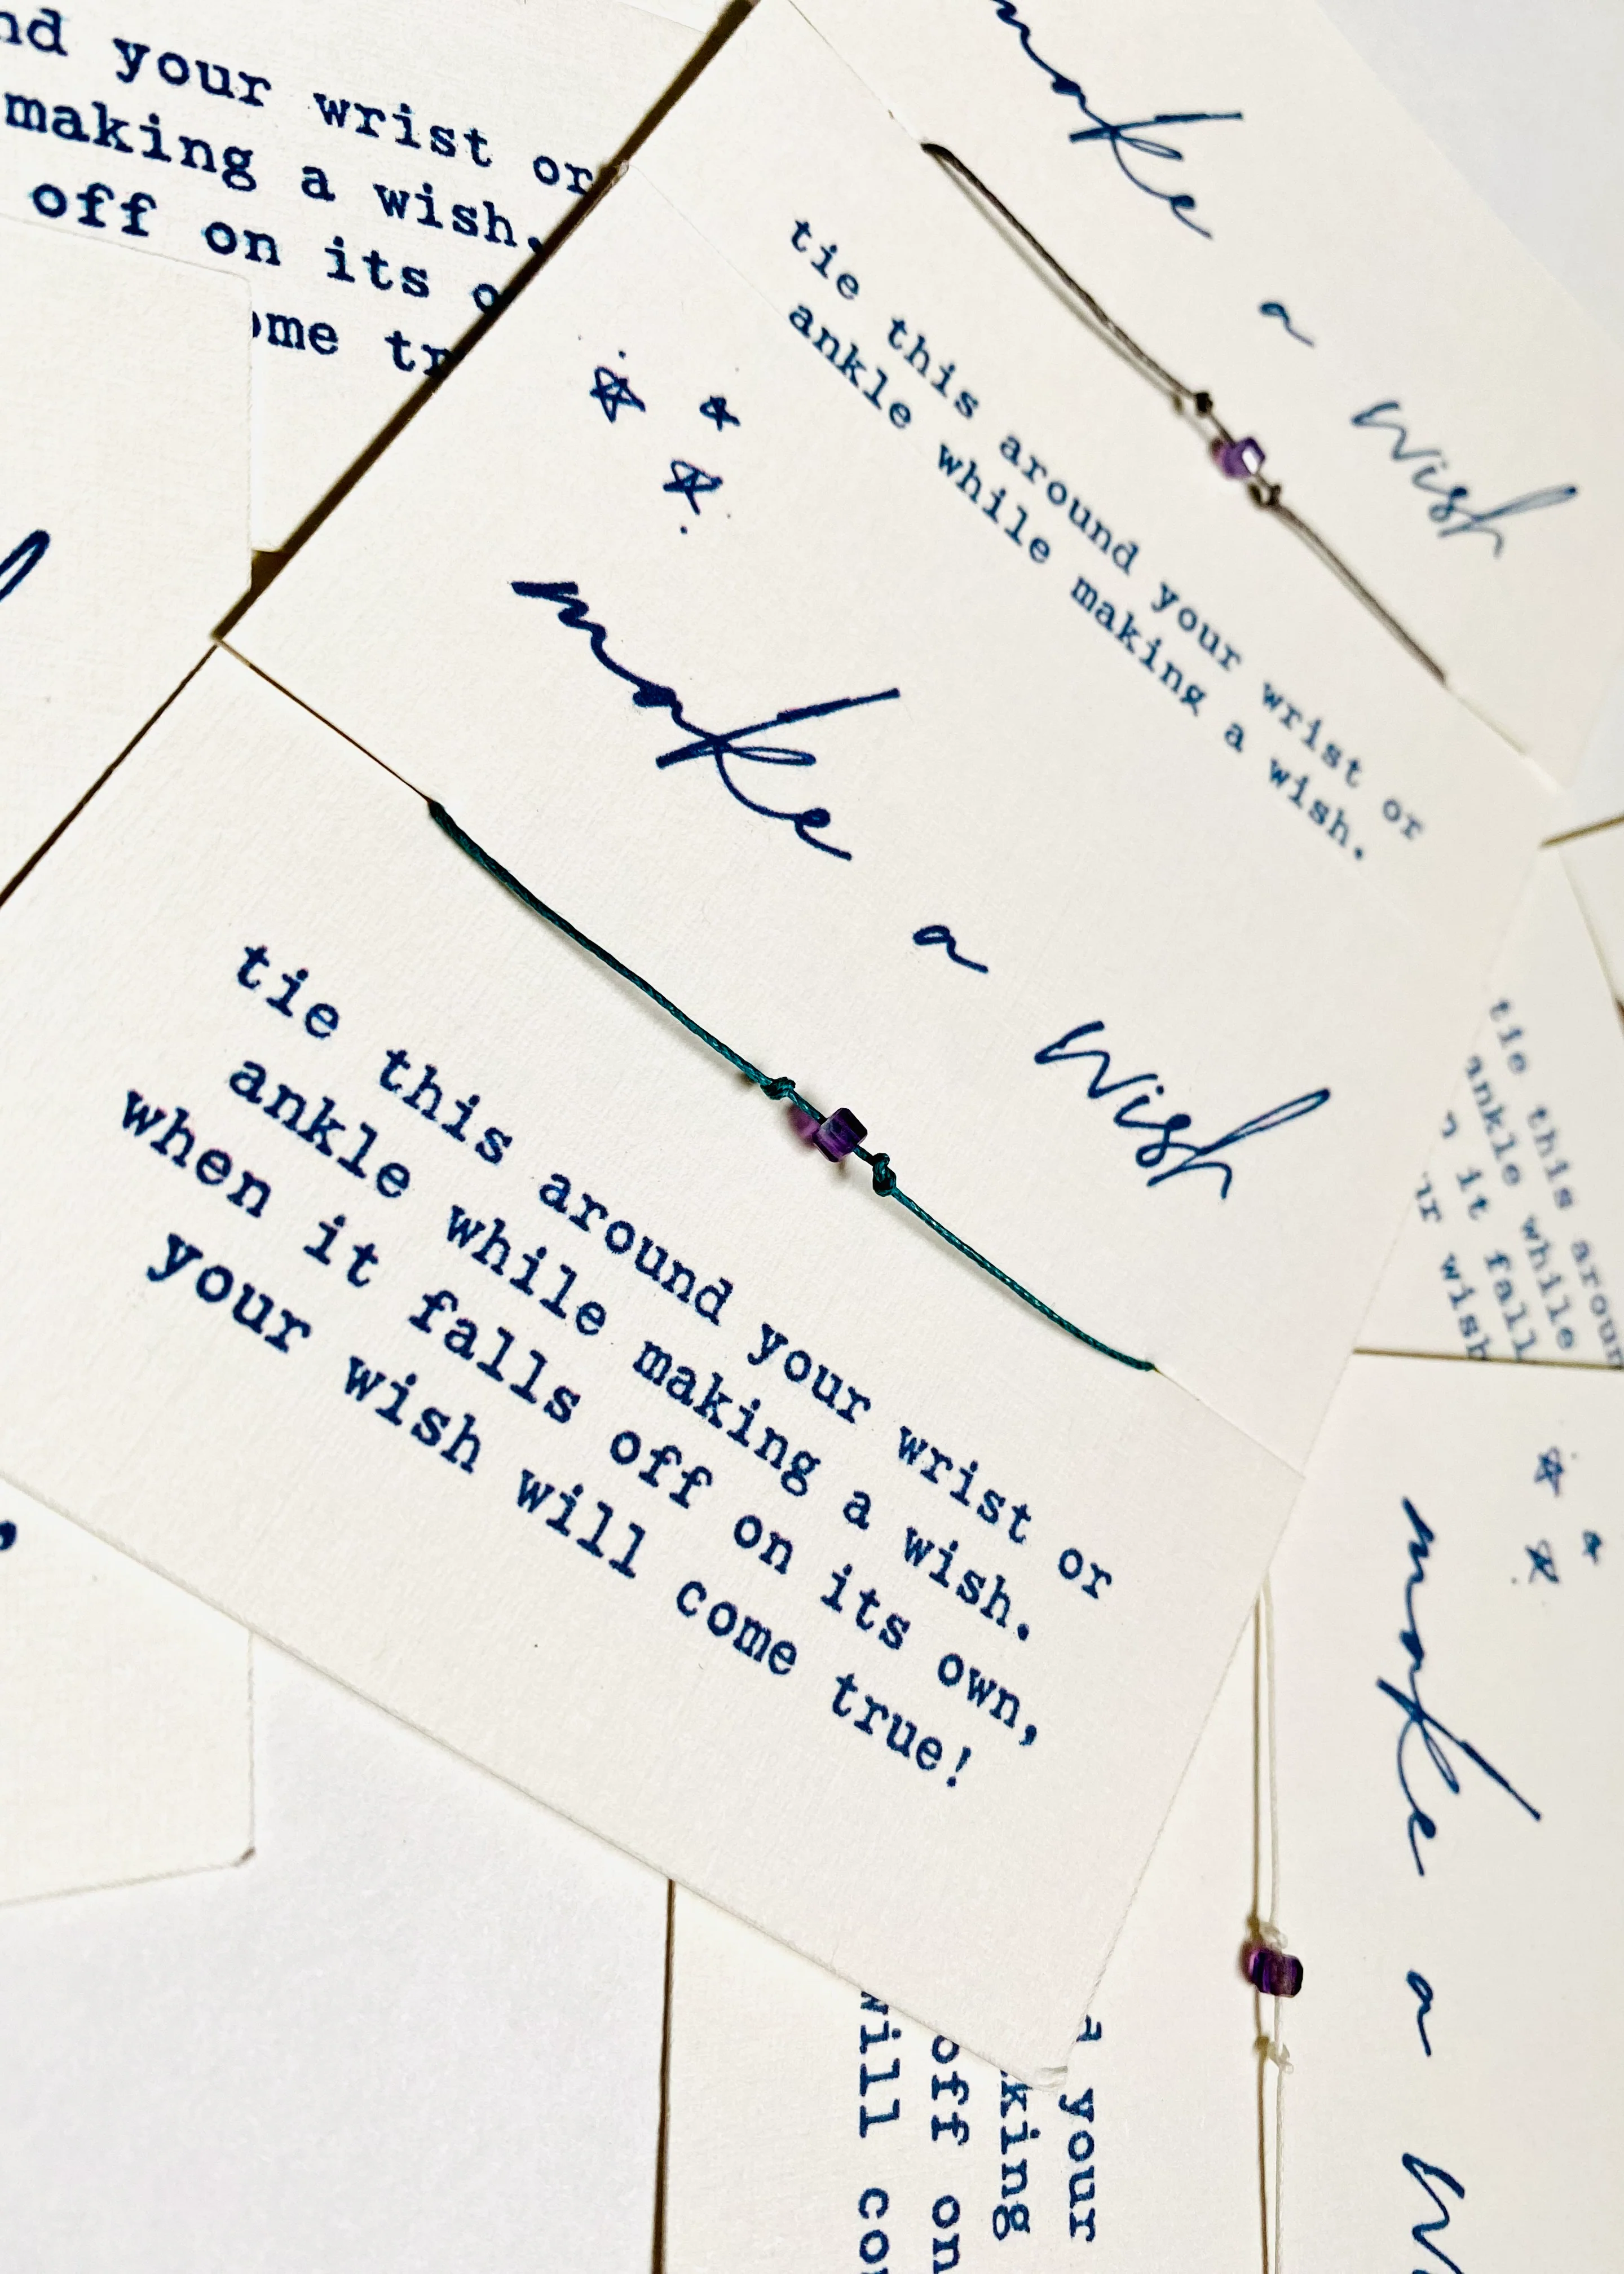 your wrist or
making a wish.
off on its
make
a
wish
tie this around your wrist or
ankle while making a wish.
make
a
wish
tie this around your wrist or
ankle while making a wish.
when it falls off on its own,
your wish will come true!
tie this
ankle while
it
wish
make
a
your
off on
will